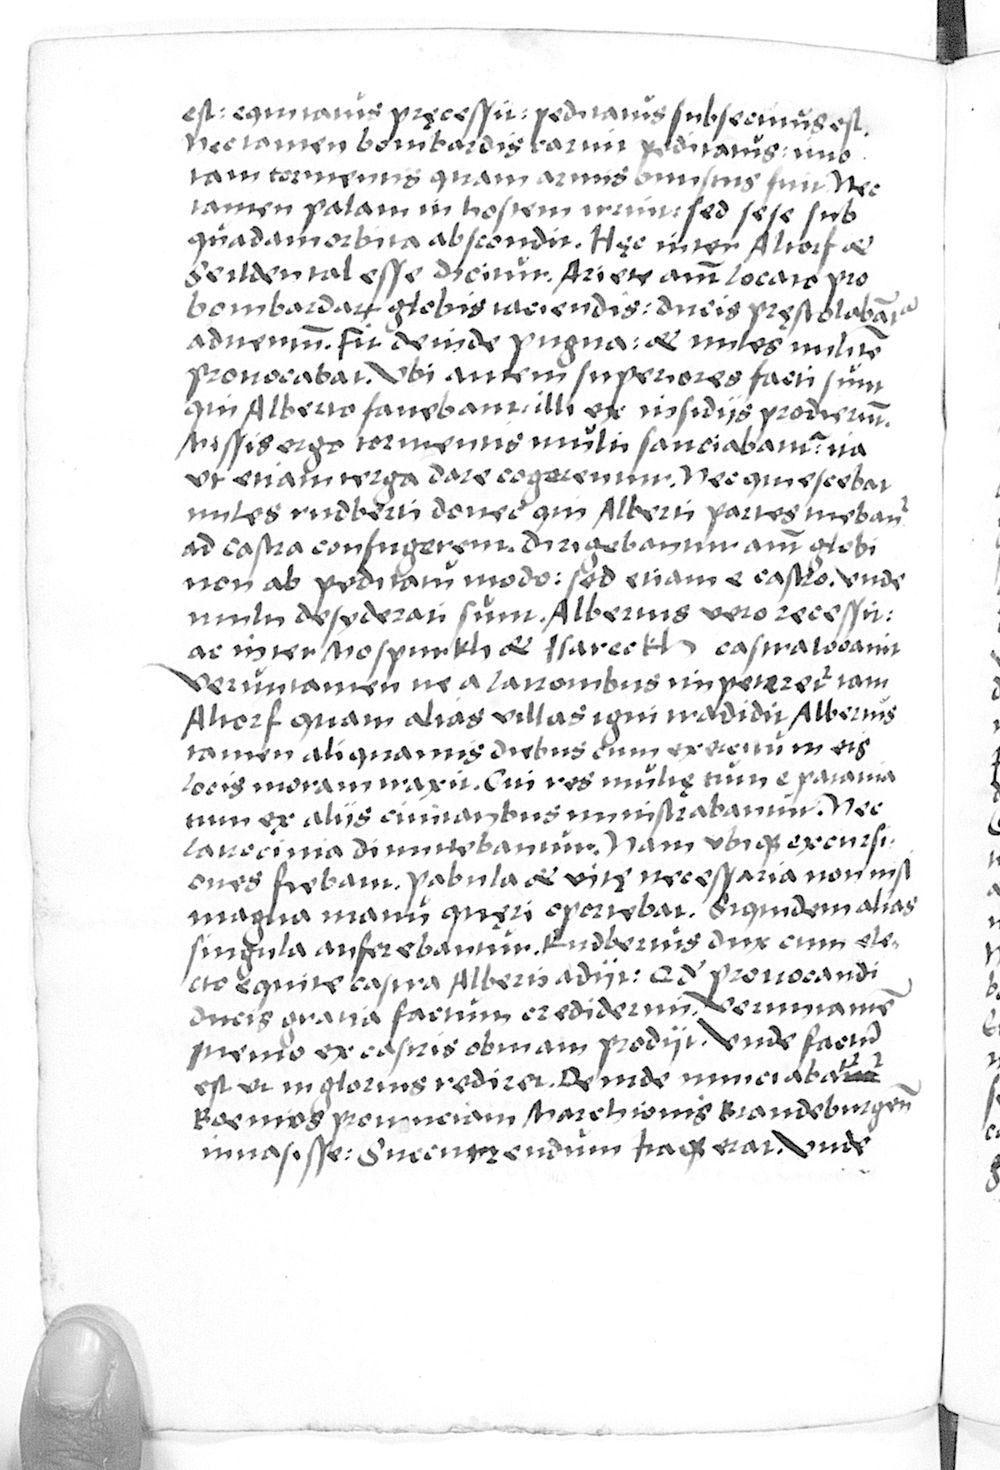 est: equitatus pręcessit: peditatus subsecutus est.
Nec tamen bombardis caruit peditatus: imo
tam tormentis quam armis onustus fuit. Nec
tamen palam in hostem irruit: sed sese sub
quadam orbita abscondit. Hęc inter Altorf &
Geildental esse dicitur. Ariete aūt locato pro
bombardarꝝ globis iaciendis: ducis pręstolabāt᷑
aduentū. Fit deinde pugna: & miles militē
prouocabat. Vbi autem superiores facti sunt
qui Alberto fauebant: illi ex insidijs prodierūt.
Missis ergo tormentis multi sauciabant᷑: ita
vt etiam terga dare cogerentur. Nec quiescebat
miles rudberti donec qui Alberti partes tuebant᷑
ad castra confugerent. Dirigebantur aūt globi
non ab peditatu modo: sed etiam e castro. Vnde
multi desyderati sunt. Albertus vero recessit:
ac inter Mospurkh & Isareckh castra locauit
Veruntamen ne a latronibus impeteret᷑ tam
Altorf quam alias villas igni tradidit Albertus
tamen aliquantis diebus cum exercitu in eis
locis moram traxit. Cui res multę tum e patauia
tum ex aliis ciuitatibus ministrabantur. Nec
latrocinia dimittebantur. Nam vbiqꝫ excursi-
ones fiebant. pabula & vitę necessaria non nisi
magna manu quęri oportebat. Siquidem alias
singula auferebantur. Rudbertus dux cum ele-
cto equite castra Alberti adijt: Qd̄ prouocandi
ducis gratia factum crediderim. Veruntamē
nemo ex castris obuiam prodijt. Vnde factū
est vt inglorius rediret. Deinde nunciabat᷑
Boemos prouinciam Marchionis Brandeburgeñ
inuasisse: Succurrendum itaqꝫ erat. Vnde